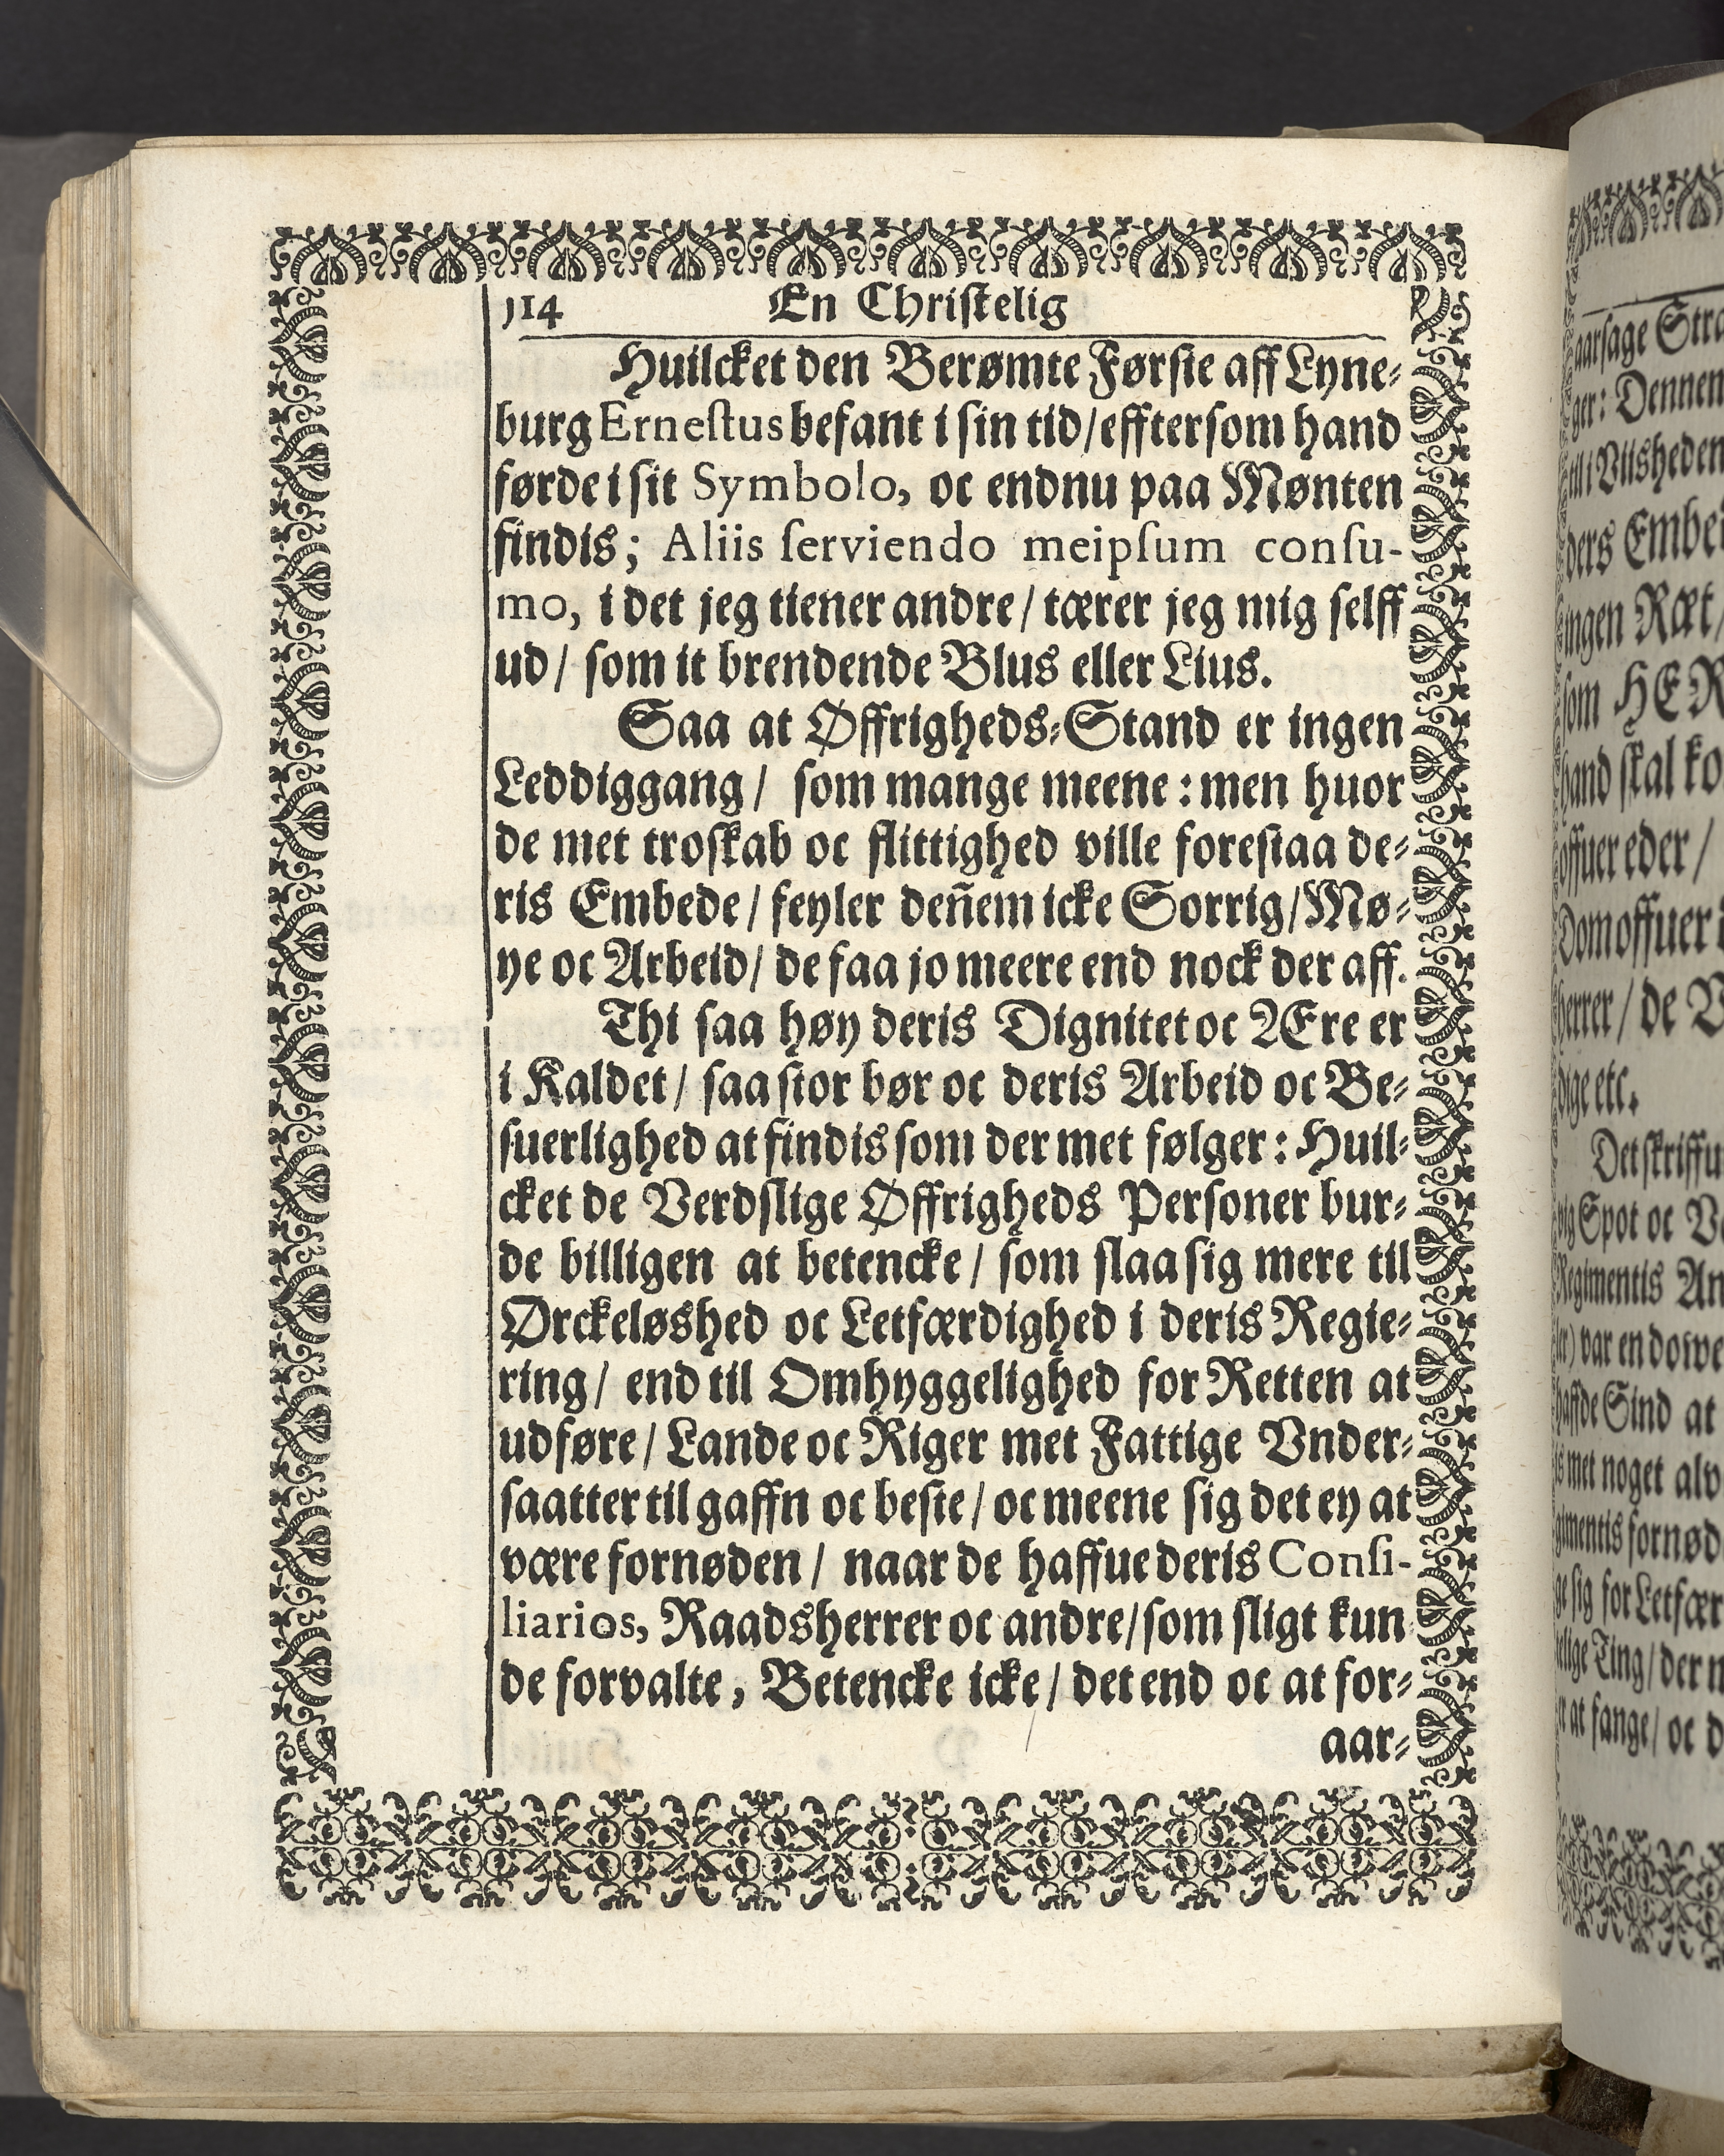 114 En Christelig
Huilcket den Berømte Førſte aff Lyne-
burg Erneſtus befant i ſin tid/effterſom hand
førde i ſit Symbolo, oc endnu paa Mønten
findis; Aliis ſerviendo meipſum conſu-
mo, i det jeg tiener andre/ tærer jeg mig ſelff
ud/ ſom it brendende Blus eller Lius.
Saa at Øffrigheds-Stand er ingen
Leddiggang/ ſom mange meene: men huor
de met troſkab oc flittighed ville foreſtaa de-
ris Embede/ feyler deñem icke Sorrig/Mø-
ye oc Arbeid/ de faa jo meere end nock der aff.
Thi ſaa høy deris Dignitet oc Ære er
i Kaldet/ ſaa ſtor bør oc deris Arbeid oc Be-
ſuerlighed at findis ſom der met følger: Huil-
cket de Verdſlige Øffrigheds Perſoner bur-
de billigen at betencke/ ſom ſlaa ſig mere til
Ørckeløshed oc Letfærdighed i deris Regie-
ring/ end til Omhyggelighed for Retten at
udføre/ Lande oc Riger met Fattige Vnder-
ſaatter til gaffn oc beſte/ oc meene ſig det ey at
være fornøden/ naar de haffue deris Conſi-
liarios, Raadsherrer oc andre/ſom ſligt kun
de forvalte, Betencke icke/ det end oc at for-
aar-
aarſage
ger: Dennem
ders
ingen Ræt/
ſom
hand ſkal
offuer eder/
Dom offuer
herrer/ de
dige etc.
Det
Spot oc
Regimentis
var en
haffde Sind at
met noget
ſig for
Ting/ der
at fange/ oc